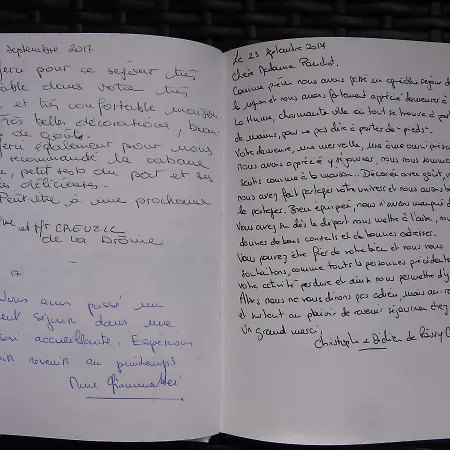 septembre 2017
pour ce séjour très
dans votre très
et très confortable maison
très belles décorations, beau
de goûts.
également pour nous
recommandé la cabane
, petit resto du port et su
délicieuses.
Peut être à une prochaine
et Mr CREUZIL
de la Drôme
17
Nous avons passé un
séjour dans une
accueillante. Espérons
revenir au printemps
Mme
Le 23 septembre 2014
Chère Madame
Comme prévu nous avons passé un agréable séjour d
la région et nous avons fortement apprécié demeurer à
charmante ville où tout se trouve à port
de mains, pour ne pas dire à portée de "pieds".
Votre demeure, une merveille, une
nous avons apprécié y séjourner, nous nous sommes
sentis comme à la maison... Décorée avec goût, v
nous avez fait partager votre univers et nous avons
le partager. Bien équipée, nous n'avons manqué d
Vous avez su dès le départ nous mettre à l'aise, nou
donner de bons conseils et de bonnes adresses.
Vous pouvez être fier de votre bien et nous vous
souhaitons, comme toutes les personnes précédente
votre activité perdure et ainsi nous permettre d'y
Alors nous ne vous dirons pas adieu, mais au-re
et surtout au plaisir de revenir séjourner chez
Un grand merci,
Christophe et Didier de Poissy